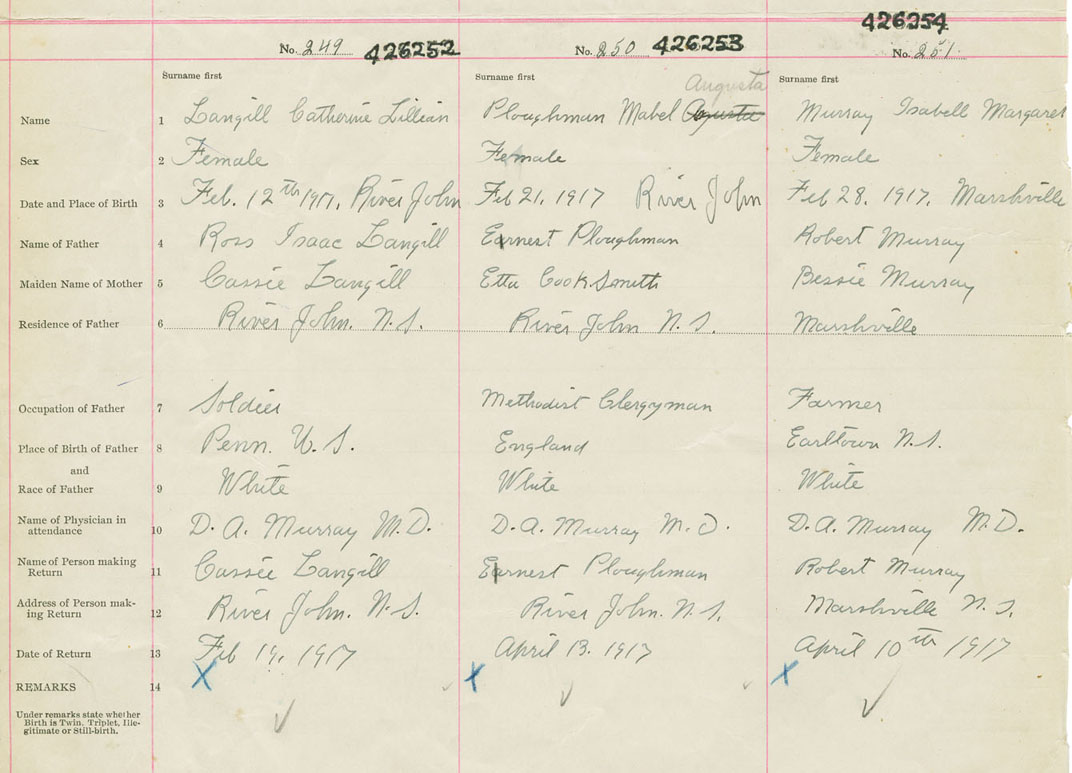 426254
No. 249 426252 No. 250 426253 No. 251
Surname first Surname first Surname first
Augusta
Name 1 Langill Catherine Lillian Ploughman Mabel Agusta Murray Isabell Margaret
Sex 2 Female Female Female
Date and Place of Birth 3 Feb. 12th 1917. River John Feb 21, 1917 River John Feb 28, 1917. Marshville
Name of Father 4 Ross Isaac Langill Earnest Ploughman Robert Murray
Maiden Name of Mother 5 Cassie Langill Etta Cook Smith Bessie Murray
Residence of Father 6 River John. N.S. River John N.S. Marshville
Occupation of Father 7 Soldier Methodist Clergyman Farmer
Place of Birth of Father 8 Penn. U.S. England Earltown N.S.
and
Race of Father 9 White White White
Name of Physician in
attendance 10 D. A. Murray M.D. D. A. Murray M.D. D. A. Murray M.D.
Name of Person making
Return 11 Cassie Langill Earnest Ploughman Robert Murray
Address of Person mak-
ing Return 12 River John. N.S. River John. N.S. Marshville N.S.
Date of Return 13 Feb 19, 1917 April 13. 1917 April 10th 1917
REMARKS 14 X X X
Under remarks state whether
Birth is Twin, Triplet, Ille-
gitimate or Still-birth.